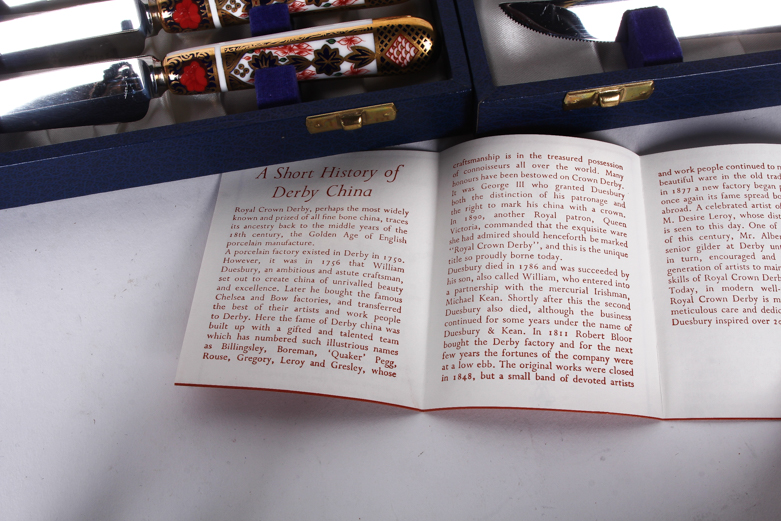 A Short History of
Derby China
Royal Crown Derby, perhaps the most widely
known and prized of all fine bone china, traces
its ancestry back to the middle years of the
18th century, the Golden Age of English
porcelain manufacture.
A porcelain factory existed in Derby in 1750.
However, it was in 1756 that William
Duesbury, an ambitious and astute craftsman,
set out to create china of unrivalled beauty
and excellence. Later he bought the famous
Chelsea and Bow factories, and transferred
the best of their artists and work people
to Derby. Here the fame of Derby china was
built up with a gifted and talented team
which has numbered such illustrious names
as Billingsley, Boreman, 'Quaker' Pegg,
Rouse, Gregory, Leroy and Gresley, whose
craftsmanship is in the treasured possession
of connoisseurs all over the world. Many
honours have been bestowed on Crown Derby.
It was George III who granted Duesbury
both the distinction of his patronage and
the right to mark his china with a crown.
In 1890, another Royal patron, Queen
Victoria, commanded that the exquisite ware
she had admired should henceforth be marked
"Royal Crown Derby", and this is the unique
title so proudly borne today.
Duesbury died in 1786 and was succeeded by
his son, also called William, who entered into
a partnership with the mercurial Irishman,
Michael Kean. Shortly after this the second
Duesbury also died, although the business
continued for some years under the name of
Duesbury & Kean. In 1811 Robert Bloor
bought the Derby factory and for the next
few years the fortunes of the company were
at a low ebb. The original works were closed
in 1848, but a small band of devoted artists
and work people continued to
beautiful ware in the old
in 1877 a new factory began
once again its fame spread
abroad. A celebrated artist
M. Desire Leroy, whose
is seen to this day. One of
of this century, Mr.
senior gilder at Derby
in turn, encouraged and
generation of artists to
skills of Royal Crown
Today, in modern
Royal Crown Derby is
meticulous care and
Duesbury inspired over